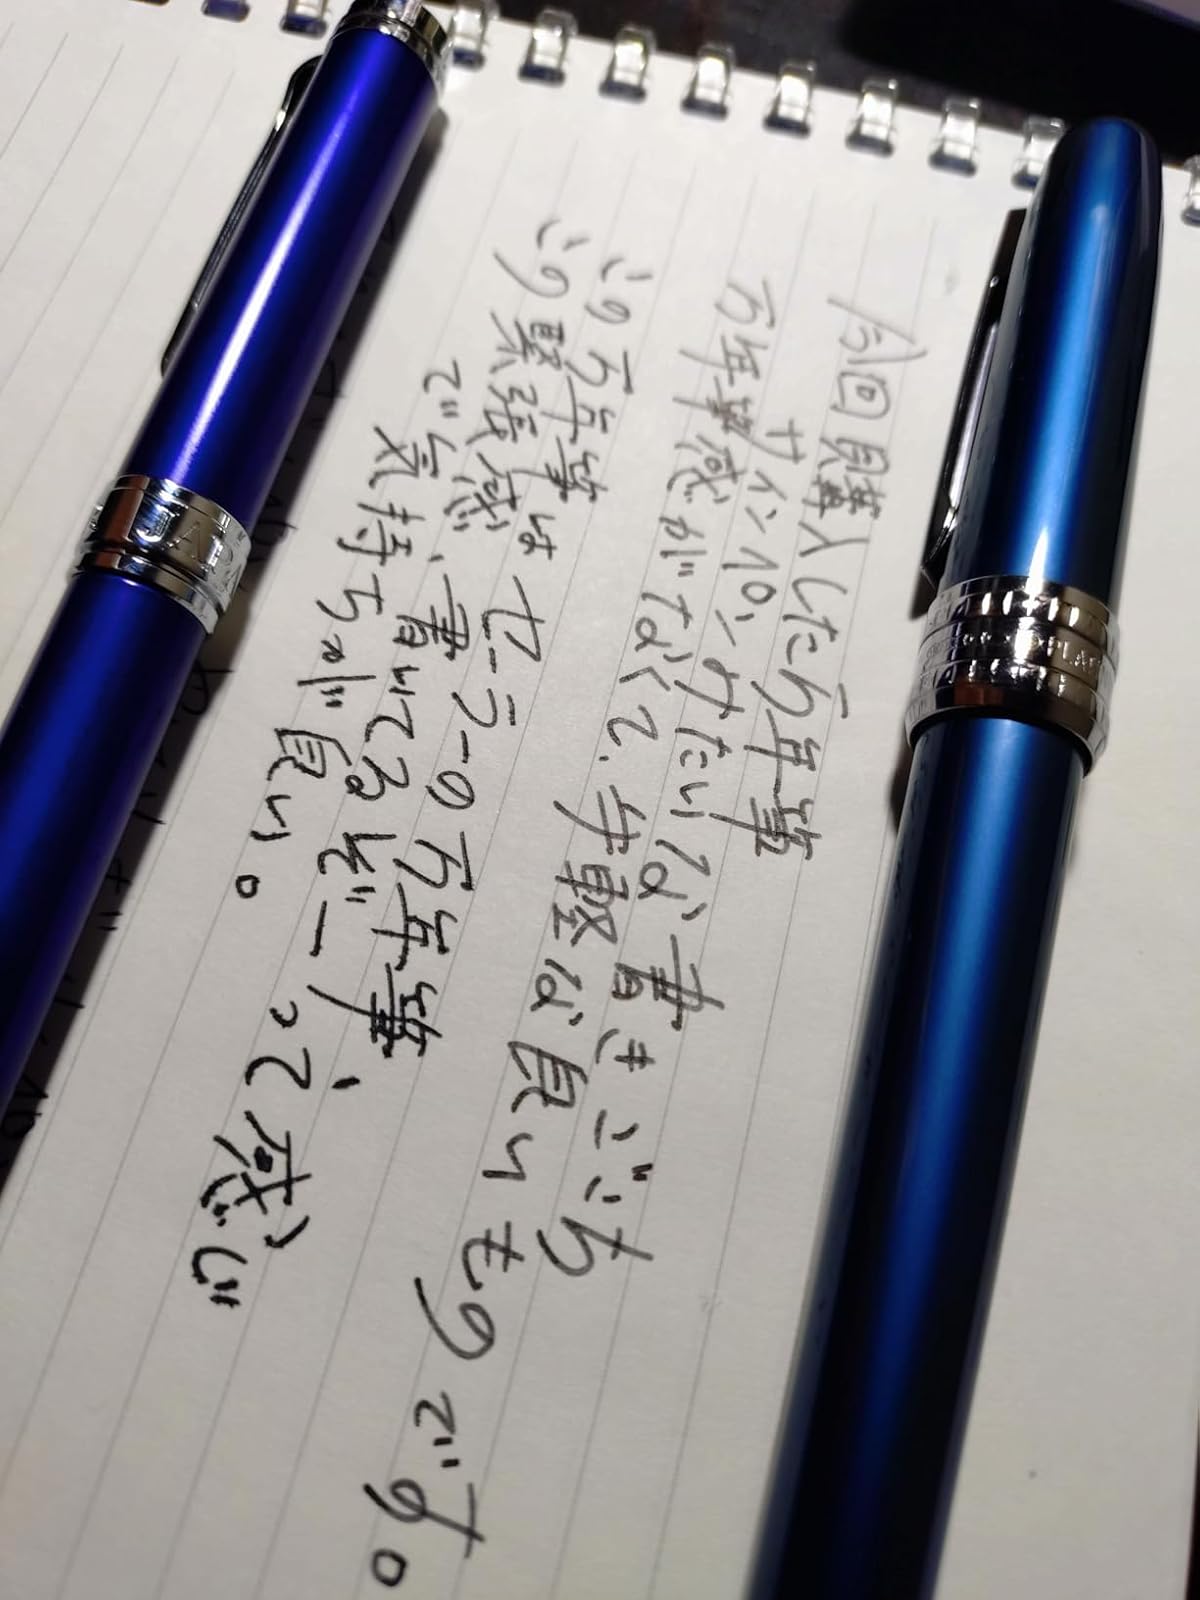 今回購入した万年筆
サインペンみたいな書きごこち
万年筆感がなくて、手軽な良いものです。
この万年筆はセーラーの万年筆
この緊張感、書いてるぞーって感じ
で気持ちが良い。
JAPA
PLAT